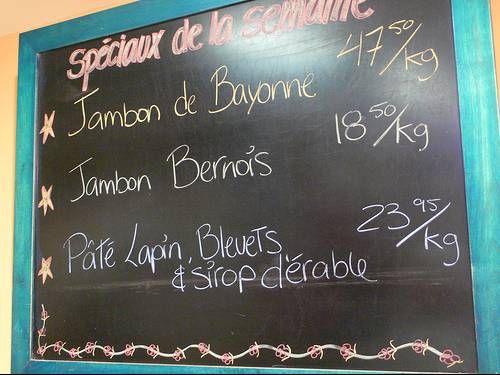 spéciaux de la semaine
Jambon de Bayonne 47 50/kg
Jambon Bernois 18 50/kg
Pâté Lapin, Bleuets 23 95/kg
& sirop d'érable